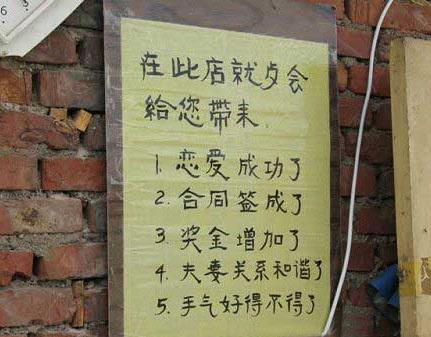 在此店就歺会
给您帶来
1. 恋爱成功了
2. 合同签成了
3. 奖金增加了
4. 夫妻关系和谐了
5. 手气好得不得了